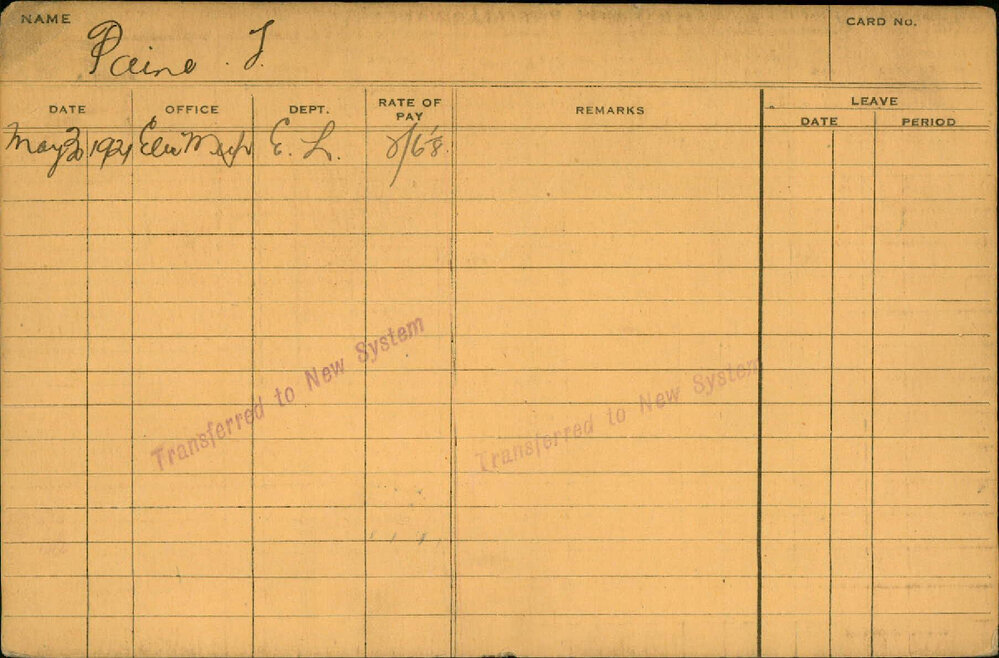 NAME
Paine J.
CARD No.
DATE OFFICE DEPT. RATE OF PAY REMARKS LEAVE
DATE PERIOD
May 1921 Elec E. L.
Transferred to New System
Transferred to New System